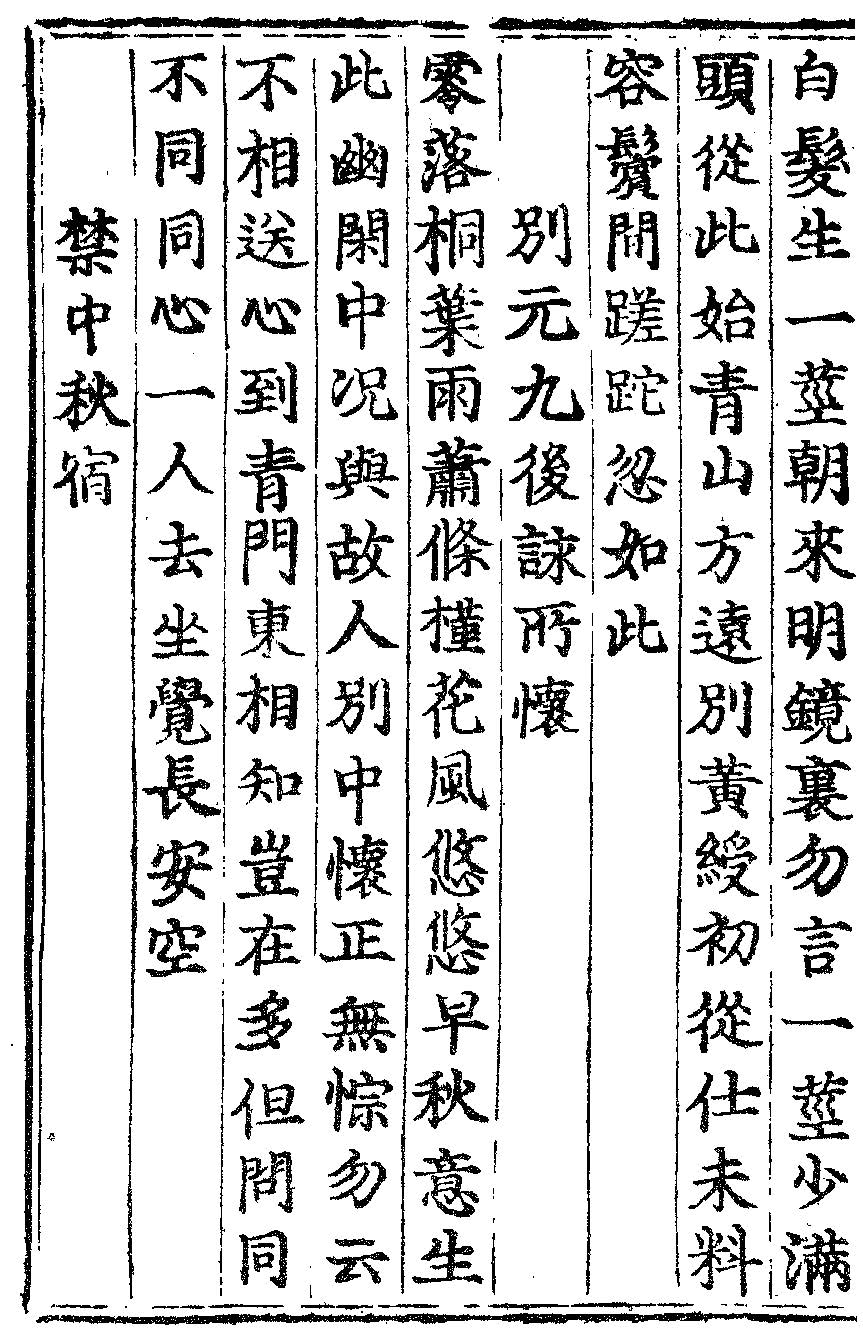 白髮生一莖朝來明鏡裏勿言一莖少滿
頭從此始青山方遠別黃綬初從仕未料
容鬢間蹉跎忽如此
別元九後詠所懷
零落桐葉雨蕭條槿花風悠悠早秋意生
此幽閑中况與故人別中懷正無悰勿云
不相送心到青門東相知豈在多但問同
不同同心一人去坐覺長安空
禁中秋宿